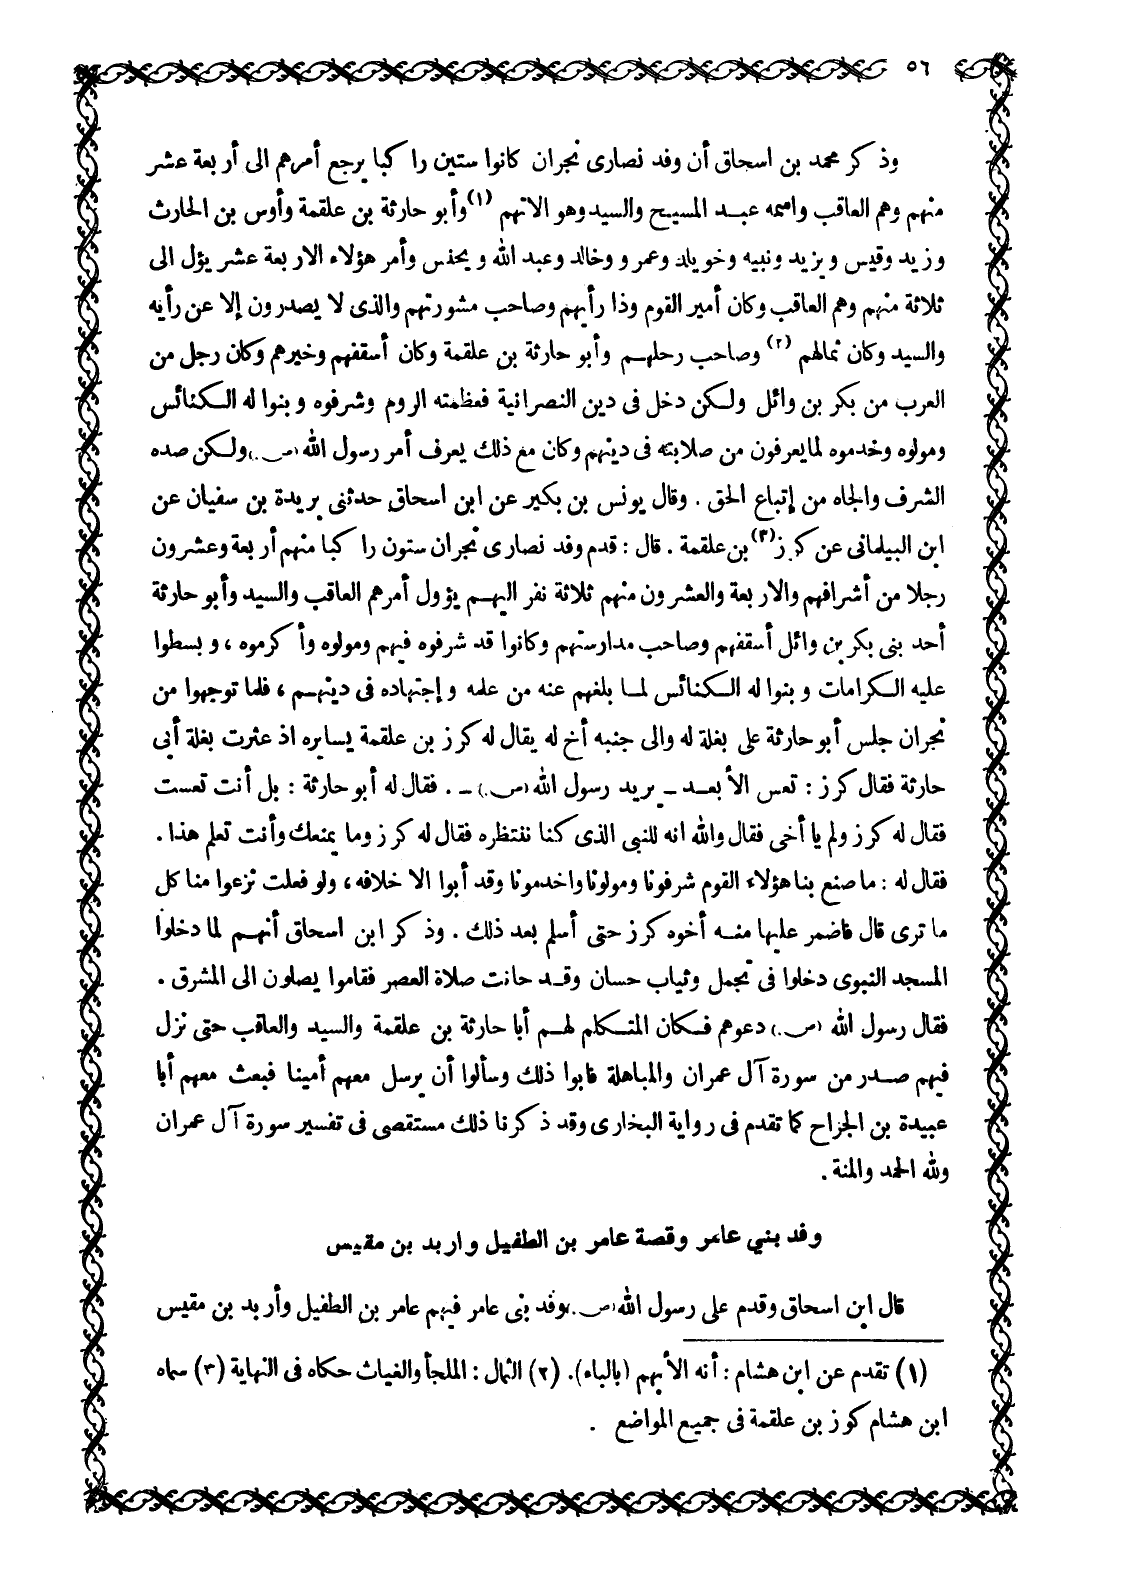 ٥٦
وذكر محمد بن اسحاق أن وفد نصارى نجران كانوا ستين راكبا يرجع أمرهم الى أربعة عشر
منهم وهم العاقب واسمه عبد المسيح والسيد وهو الاتهم (١) وأبو حارثة بن علقمة وأوس بن الحارث
وزيد وقيس ويزيد ونبيه وخويلد وعمرو وخالد وعبد الله ويحنس وأمر هؤلاء الاربعة عشر يؤل الى
ثلاثة منهم وهم العاقب وكان أمير القوم وذا رأيهم وصاحب مشورتهم والذى لا يصدرون إلا عن رأيه
والسيد وكان ثمالهم (٢) وصاحب رحلهم وأبو حارثة بن علقمة وكان أسقفهم وخيرهم وكان رجل من
العرب من بكر بن وائل ولكن دخل فى دين النصرانية فعظمته الروم وشرفوه وبنوا له الكنائس
ومولوه وخدموه لما يعرفون من صلابته فى دينهم وكان مع ذلك يعرف أمر رسول الله (ص.) ولكن صده
الشرف والجاه من إتباع الحق . وقال يونس بن بكير عن ابن اسحاق حدثنى بريدة بن سفيان عن
ابن البيلمانى عن كرز (٣) بن علقمة . قال : قدم وفد نصارى نجران ستون راكبا منهم أربعة وعشرون
رجلا من أشرافهم والاربعة والعشرون منهم ثلاثة نفر اليهم يؤول أمرهم العاقب والسيد وأبو حارثة
أحد بنى بكر بن وائل أسقفهم وصاحب مدارستهم وكانوا قد شرفوه فيهم ومولوه وأكرموه ، وبسطوا
عليه الكرامات وبنوا له الكنائس لما بلغهم عنه من علمه وإجتهاده فى دينهم ، فلما توجهوا من
نجران جلس أبو حارثة على بغلة له والى جنبه أخ له يقال له كرز بن علقمة يسايره اذ عثرت بغلة أبي
حارثة فقال كرز : تعس الأبعد ـ يريد رسول الله (ص.) ـ . فقال له أبو حارثة : بل أنت تعست
فقال له كرز ولم يا أخى فقال والله انه للنبى الذى كنا ننتظره فقال له كرز وما يمنعك وأنت تعلم هذا .
فقال له : ما صنع بنا هؤلاء القوم شرفونا ومولونا واخدمونا وقد أبوا الا خلافه ، ولو فعلت نزعوا منا كل
ما ترى قال فاضمر عليها منه أخوه كرز حتى أسلم بعد ذلك . وذكر ابن اسحاق أنهم لما دخلوا
المسجد النبوى دخلوا فى تجمل وثياب حسان وقد حانت صلاة العصر فقاموا يصلون الى المشرق .
فقال رسول الله (ص.) دعوهم فكان المتكلم لهم أبا حارثة بن علقمة والسيد والعاقب حتى نزل
فيهم صدر من سورة آل عمران والمباهلة فابوا ذلك وسألوا أن يرسل معهم أمينا فبعث معهم أبا
عبيدة بن الجراح كما تقدم فى رواية البخارى وقد ذكرنا ذلك مستقصى فى تفسير سورة آل عمران
ولله الحمد والمنة .
وفد بني عامر وقصة عامر بن الطفيل واربد بن مقيس
قال ابن اسحاق وقدم على رسول الله (ص.) وفد بنى عامر فيهم عامر بن الطفيل وأربد بن مقيس
(١) تقدم عن ابن هشام : أنه الأيهم (بالياء). (٢) الثمال : الملجأ والغياث حكاه فى النهاية (٣) سماه
ابن هشام كوز بن علقمة فى جميع المواضع .